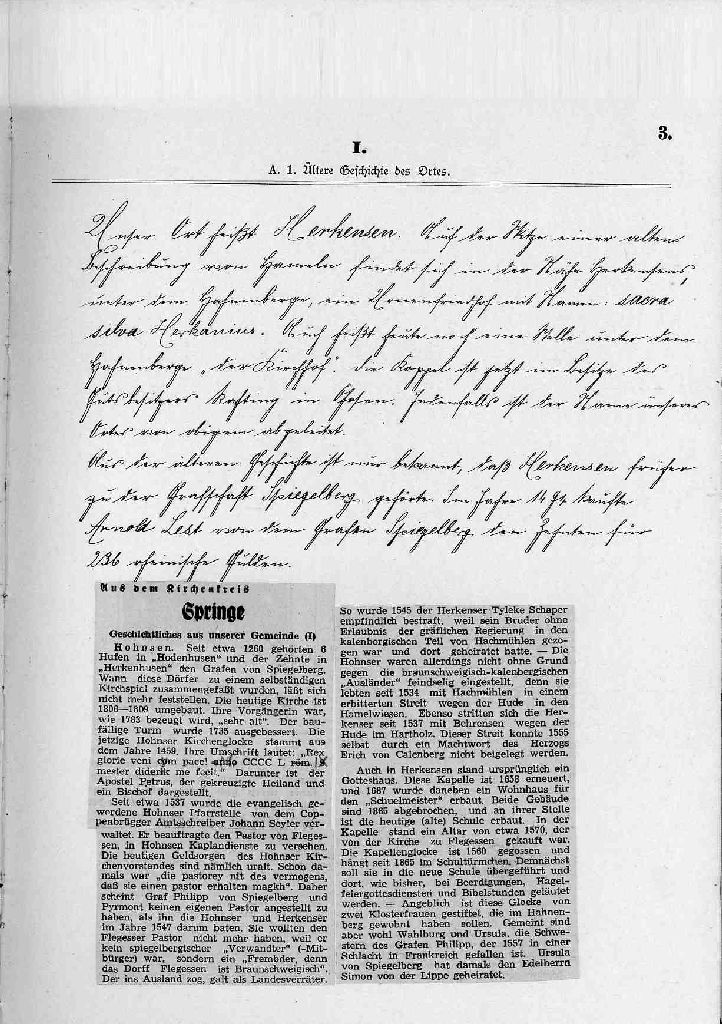 3.
I.
A. 1. Ältere Geschichte des Ortes.
Unser Ort heißt Herkensen. Auf der Skizze einer alten
Beschreibung von Hameln findet sich in der Nähe Herkensens,
unter dem Hahnenberge, ein Urnenfriedhof mit Namen: sacra
silva Herkanius. Auch heißt heute noch eine Stelle unter dem
Hahnenberge „der Kirchhof". Die Koppel ist jetzt im Besitze des
Gutsbesitzers in Jedenfalls ist der Name unseres
Ortes von obigem abgeleitet.
Aus der älteren Geschichte ist nur bekannt, daß Herkensen früher
zu der Grafschaft Spiegelberg gehörte. Im Jahre 1494 kaufte
Arnold Lest von dem Grafen Spiegelberg den Zehnten für
236 rheinische Gulden.
Aus dem Kirchenkreis
Springe
Geschichtliches aus unserer Gemeinde (I)
Hohnsen. Seit etwa 1260 gehörten 6
Hufen in „Hodenhusen" und der Zehnte in
„Herkenhusen" den Grafen von Spiegelberg.
Wann diese Dörfer zu einem selbständigen
Kirchspiel zusammengefaßt wurden, läßt sich
nicht mehr feststellen. Die heutige Kirche ist
1806—1809 umgebaut. Ihre Vorgängerin war,
wie 1783 bezeugt wird, „sehr alt". Der bau-
fällige Turm wurde 1735 ausgebessert. Die
jetzige Hohnser Kirchenglocke stammt aus
dem Jahre 1459. Ihre Umschrift lautet: „Rex
glorie veni cum pace! anno CCCC L
mester diderik me fecit." Darunter ist der
Apostel Petrus, der gekreuzigte Heiland und
ein Bischof dargestellt.
Seit etwa 1537 wurde die evangelisch ge-
wordene Hohnser Pfarrstelle von dem Cop-
penbrügger Amtsschreiber Johann Seyler ver-
waltet. Er beauftragte den Pastor von Fleges-
sen, in Hohnsen Kaplandienste zu versehen.
Die heutigen Geldsorgen des Hohnser Kir-
chenvorstandes sind nämlich uralt. Schon da-
mals war „die pastorey nft des vermogens,
daß sie einen pastor erhalten magkh". Daher
scheint Graf Philipp von Spiegelberg und
Pyrmont keinen eigenen Pastor angestellt zu
haben, als ihn die Hohnser und Herkenser
im Jahre 1547 darum baten. Sie wollten den
Flegesser Pastor nicht mehr haben, weil er
kein spiegelbergischer „Verwandter" (=Mit-
bürger) war, sondern ein „Frembder, denn
das Dorff Flegessen ist Braunschweigisch".
Der ins Ausland zog, galt als Landesverräter.
So wurde 1545 der Herkenser Tyleke Schaper
empfindlich bestraft, weil sein Bruder ohne
Erlaubnis der gräflichen Regierung in den
kalenbergischen Teil von Hachmühlen gezo-
gen war und dort geheiratet hatte. — Die
Hohnser waren allerdings nicht ohne Grund
gegen die braunschweigisch-kalenbergischen
„Ausländer" feindselig eingestellt, denn sie
lebten seit 1534 mit Hachmühlen in einem
erbitterten Streit wegen der Hude in den
Hamelwiesen. Ebenso stritten sich die Her-
kenser seit 1537 mit Behrensen wegen der
Hude im Hartholz. Dieser Streit konnte 1555
selbst durch ein Machtwort des Herzogs
Erich von Calenberg nicht beigelegt werden.
Auch in Herkensen stand ursprünglich ein
Gotteshaus. Diese Kapelle ist 1658 erneuert,
und 1687 wurde daneben ein Wohnhaus für
den „Schuelmeister" erbaut. Beide Gebäude
sind 1865 abgebrochen, und an ihrer Stelle
ist die heutige (alte) Schule erbaut. In der
Kapelle stand ein Altar von etwa 1570, der
von der Kirche zu Flegessen gekauft war.
Die Kapellenglocke ist 1560 gegossen und
hängt seit 1865 im Schultürmchen. Demnächst
soll sie in die neue Schule übergeführt und
dort, wie bisher, bei Beerdigungen, Hagel-
feiergottesdiensten und Bibelstunden geläutet
werden. — Angeblich ist diese Glocke von
zwei Klosterfrauen gestiftet, die im Hahnen-
berg gewohnt haben sollen. Gemeint sind
aber wohl Wahlburg und Ursula, die Schwe-
stern des Grafen Philipp, der 1557 in einer
Schlacht in Frankreich gefallen ist. Ursula
von Spiegelberg hat damals den Edelherrn
Simon von der Lippe geheiratet.